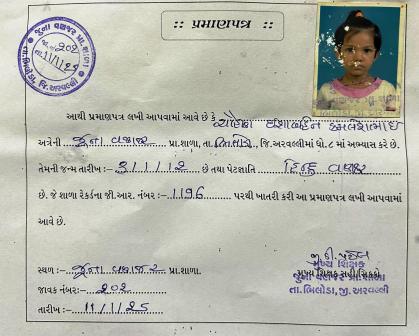 :: પ્રમાણપત્ર ::
જુના વણજર પ્રા.શાળા
જા.નં ૨૦૨
તા. 11/1/25
તા.ભિલોડા, જિ.અરવલ્લી
આથી પ્રમાણપત્ર લખી આપવામાં આવે છે કે
અત્રેની જુના વણજર પ્રા.શાળા, તા. ભિલોડા, જિ.અરવલ્લીમાં ધો. ૮ માં અભ્યાસ કરે છે.
તેમની જન્મ તારીખ :- 3/1/12 છે તથા પેટાજ્ઞાતિ હિન્દુ વણજર
છે. જે શાળા રેકર્ડના જી.આર. નંબર :- 1196 પરથી ખાતરી કરી આ પ્રમાણપત્ર લખી આપવામાં
આવે છે.
સ્થળ :- જુના વણજર પ્રા.શાળા.
જાવક નંબર:- ૨૦૨
તારીખ :- 11/1/25
મુખ્ય શિક્ષક
જુના વણજર પ્રા.શાળા
તા.ભિલોડા, જી.અરવલ્લી